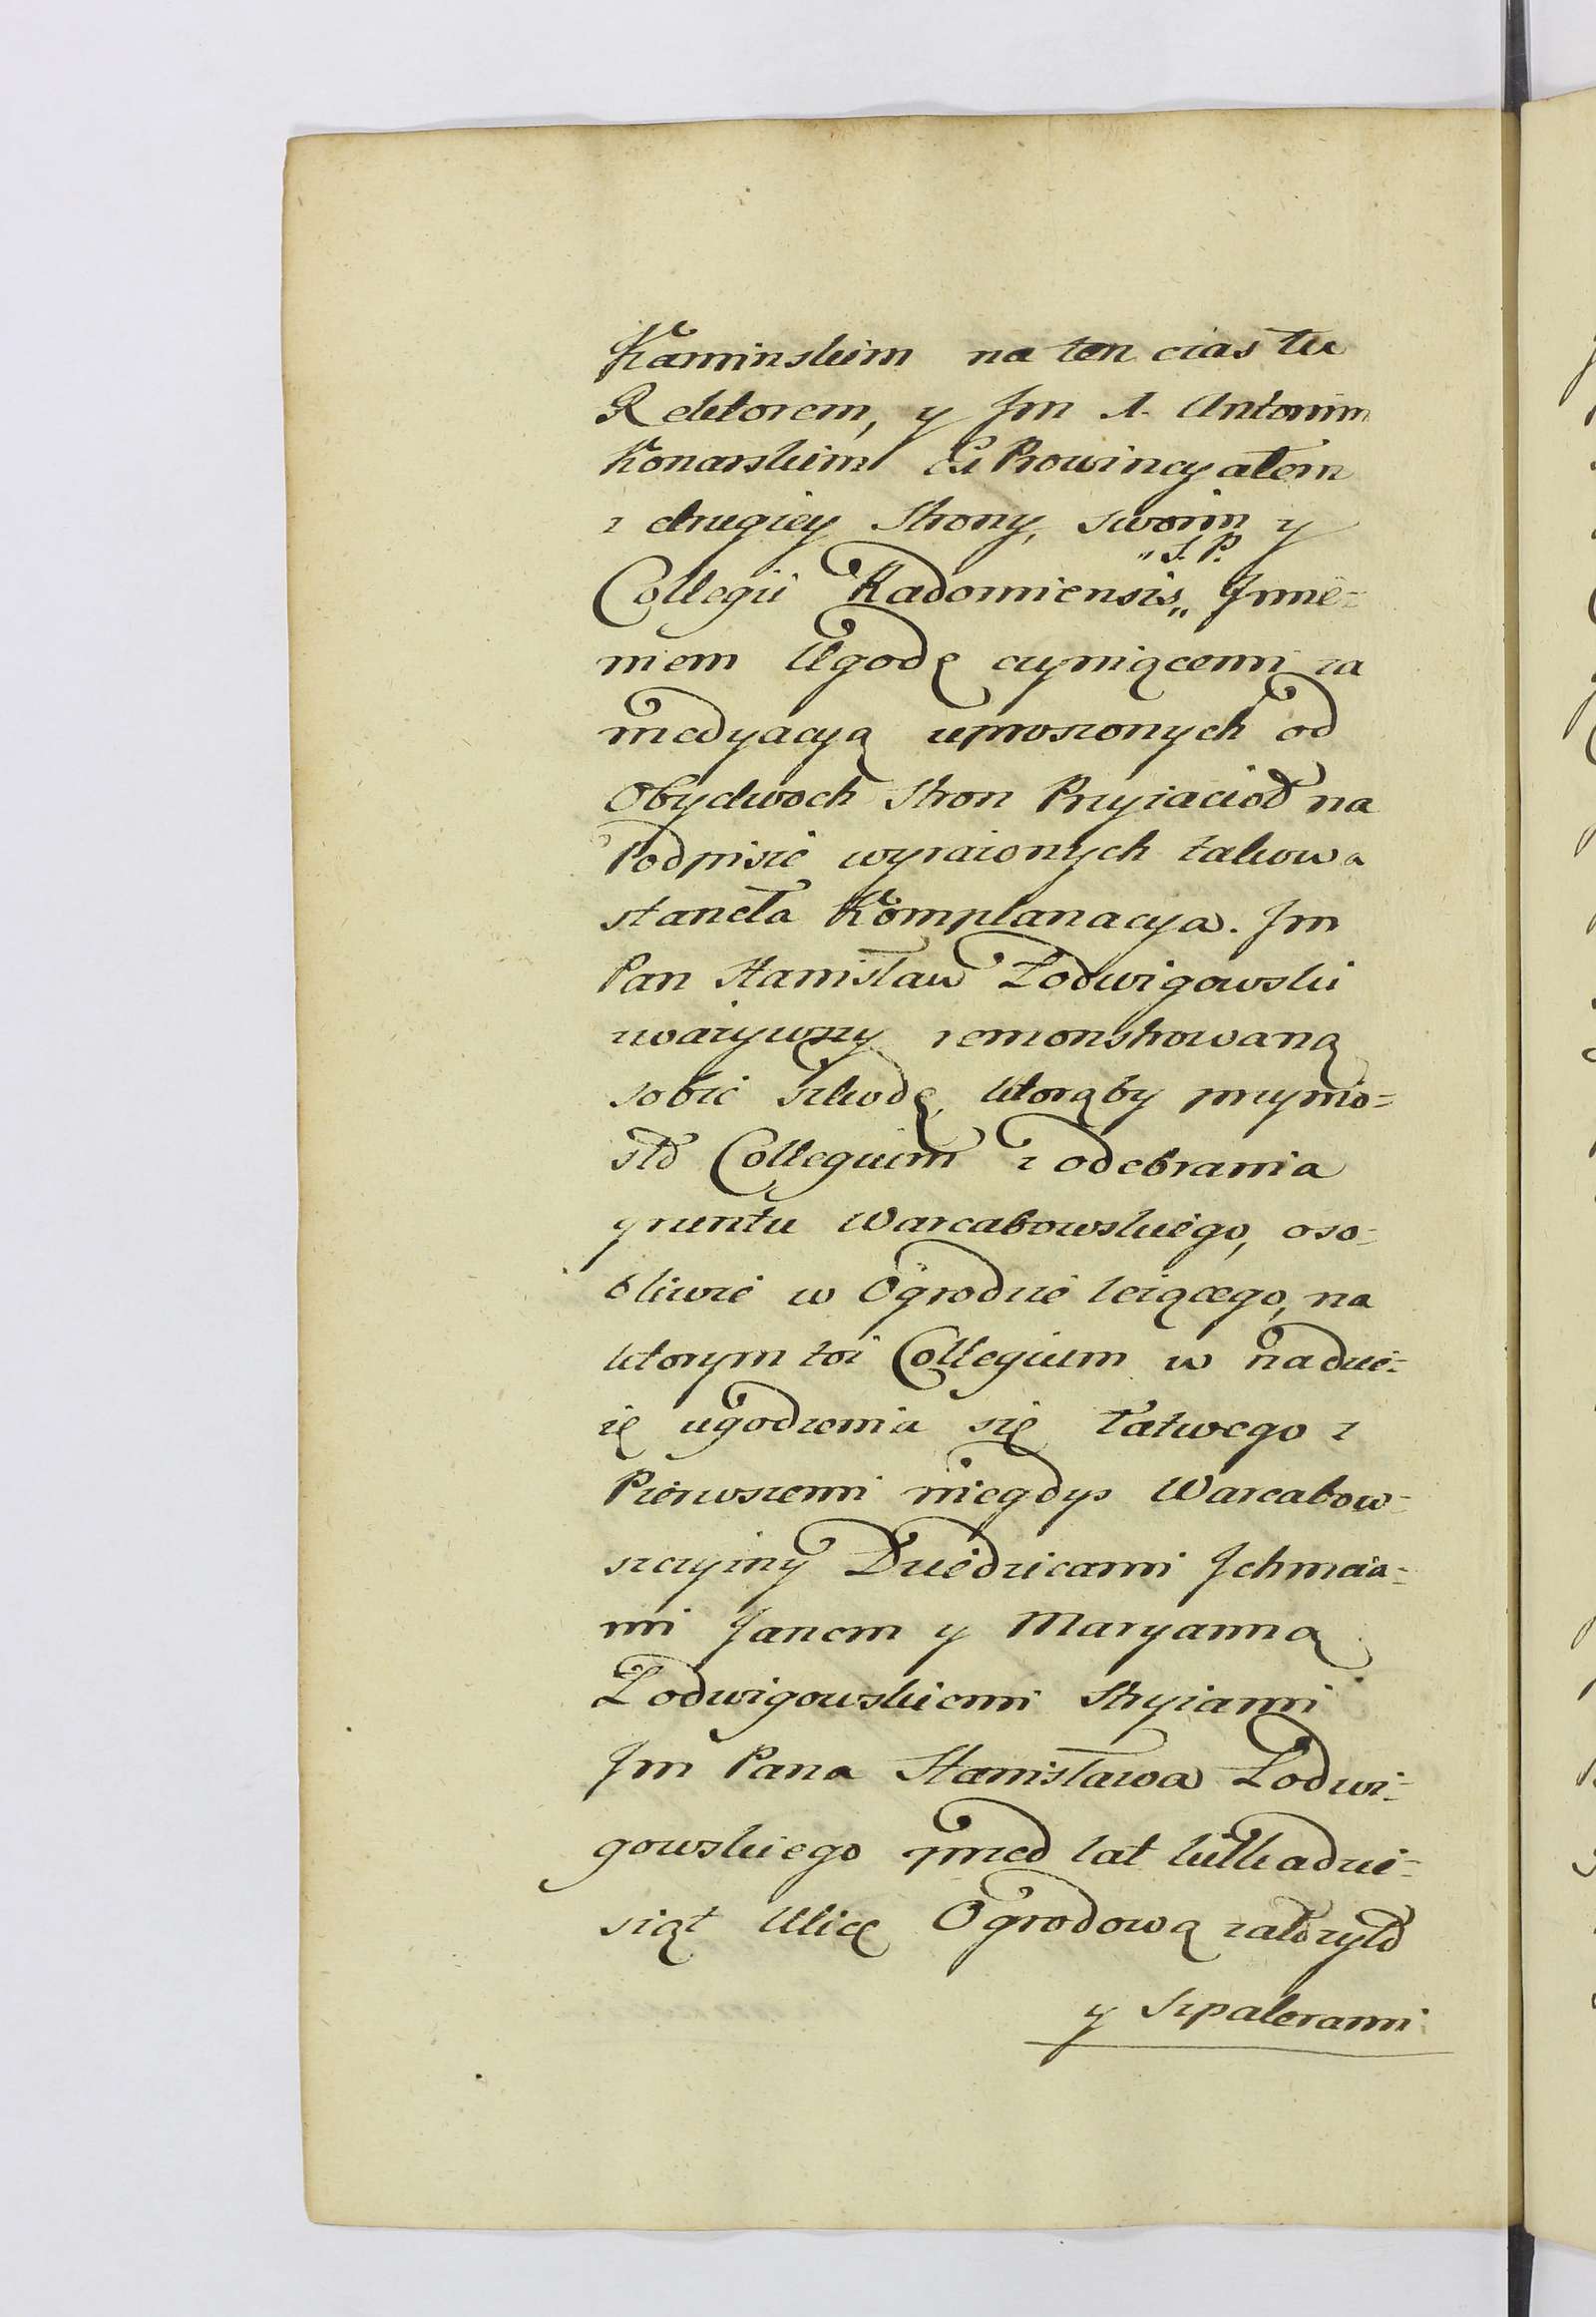 Kaminskim na ten czas tu
Rektorem, y Jm X. Antonim
Konarskim Ex Prowincyałem
z drugiey Strony, swoim y
"S. P.
Collegii Radomiensis,, Jmie=
niem Ugodę czyniącemi za
medyacyą uproszonych od
Obydwoch Stron Przyiacioł na
Podpisie wyrażonych takowa
staneła Komplanacya. Jm
Pan Stanisław Łodwigowski
zważywszy remonstrowaną
sobie szkodę, ktorąby przynio=
sło Collegium z odebrania
gruntu Warcabowskiego, oso=
bliwie w Ogrodzie leżącego, na
ktorym toż Collegium w nadzie=
ię ugodzenia się łatwego z
Pierwszemi niegdys Warcabow=
szczyzny Dziedzicami Jchmcia=
mi Janem y Maryanną
Łodwigowskiemi Stryiami
Jm Pana Stanisława Łodwi=
gowskiego przed lat kilkadzie=
siąt Ulicę Ogrodową założyło
y szpalerami